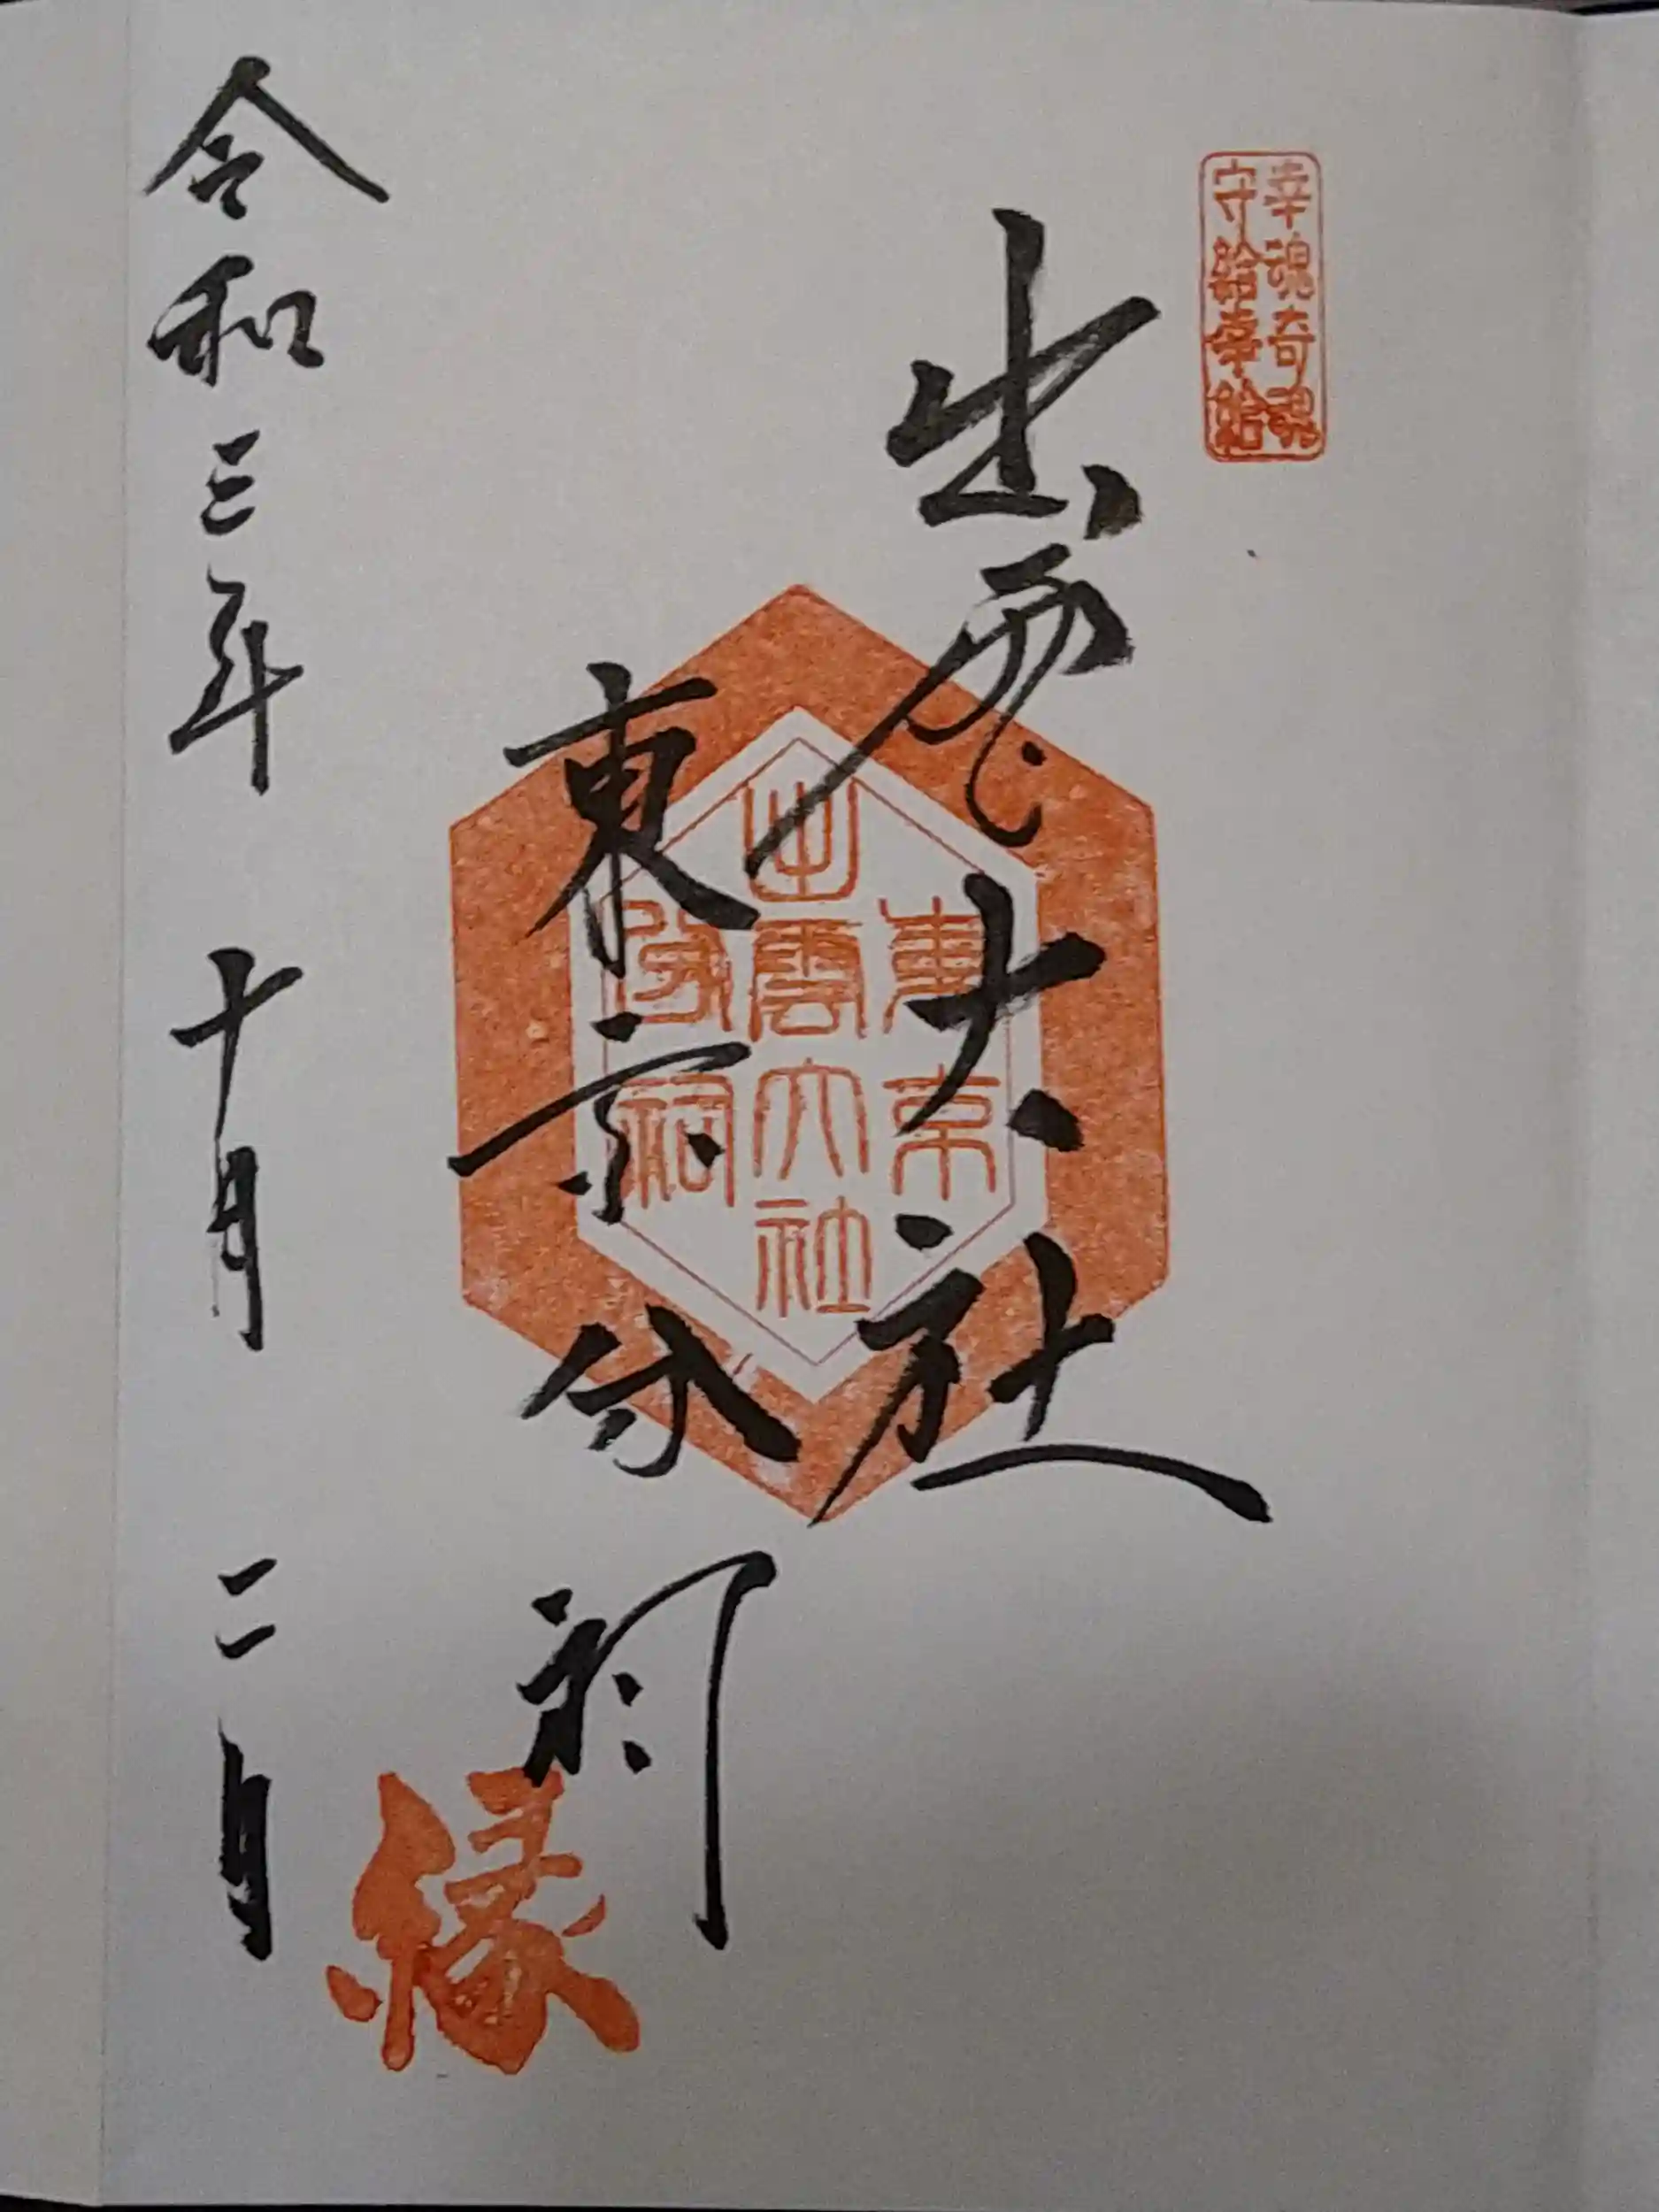 幸魂奇魂
守給幸給
出雲大社
東京分祠
東京
出雲大社
分祠
縁
令和三年十月二日